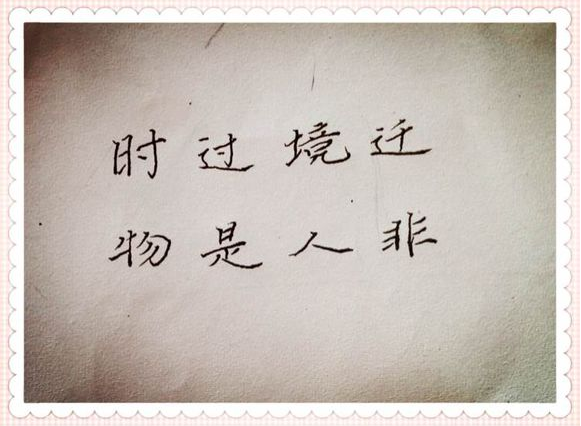 时过境迁
物是人非